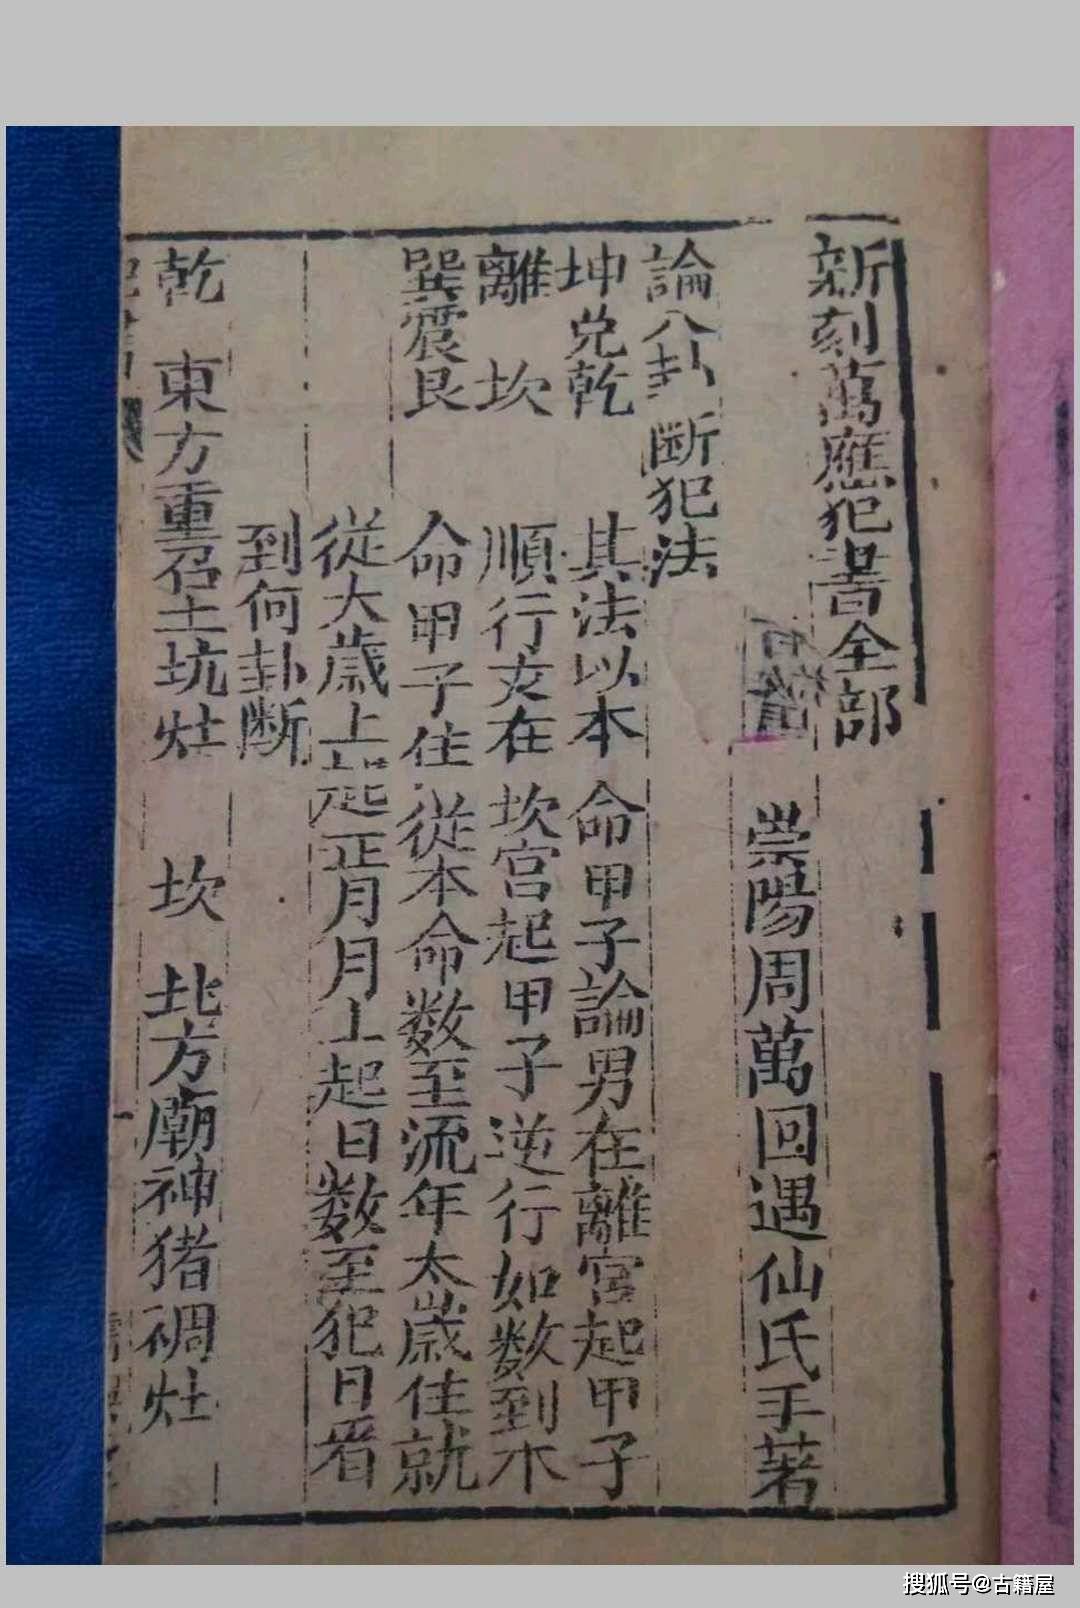 新刻萬應犯書全部
崇陽周萬回遇仙氏手著
論八卦斷犯法
坤兌乾 其法以本命甲子論男在離宮起甲子
離 坎 順行女在坎宮起甲子逆行如数到木
巽震艮 命甲子住從本命数至流年太歲住就
從大歲上起正月月上起日数至犯日看
到何卦断
乾 東方重召土坑灶 坎 北方廟神猪禂灶
搜狐号@古籍屋